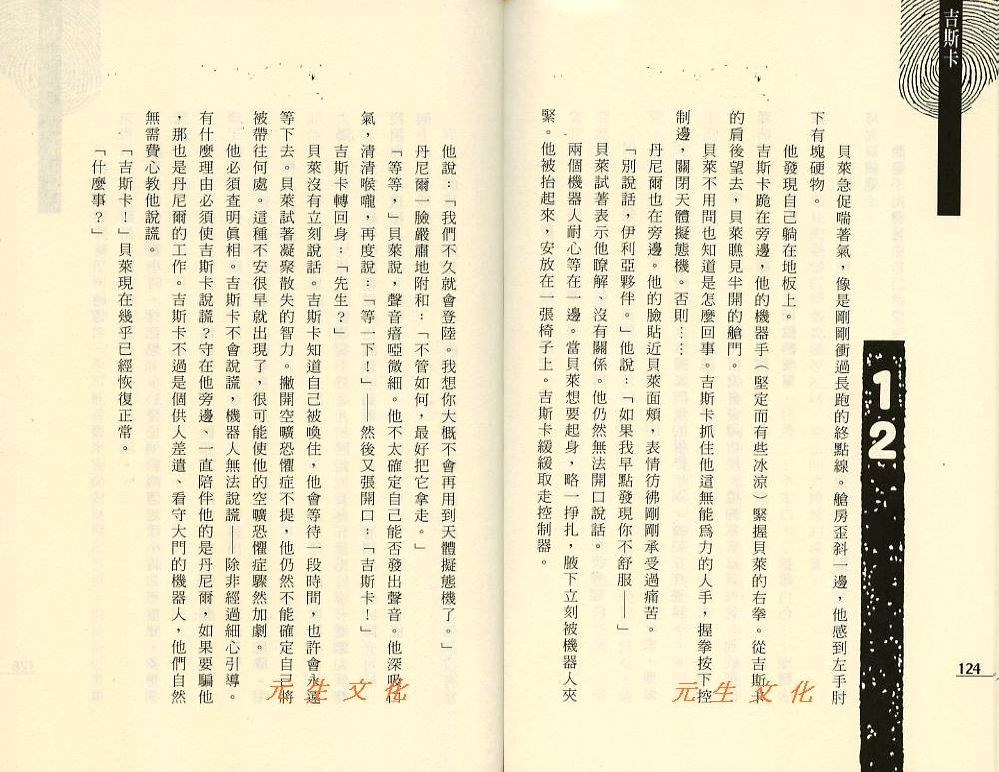 吉斯卡
12
貝萊急促喘著氣，像是剛剛衝過長跑的終點線。艙房歪斜一邊，他感到左手肘
下有塊硬物。
他發現自己躺在地板上。
吉斯卡跪在旁邊，他的機器手（堅定而有些冰涼）緊握貝萊的右拳。從吉斯卡
的肩後望去，貝萊瞧見半開的艙門。
貝萊不用問也知道是怎麼回事。吉斯卡抓住他這無能爲力的人手，握拳按下控
制邊，關閉天體擬態機。否則……
丹尼爾也在旁邊。他的臉貼近貝萊面頰，表情彷彿剛剛承受過痛苦。
「別說話，伊利亞夥伴。」他說：「如果我早點發現你不舒服——」
貝萊試著表示他瞭解、沒有關係。他仍然無法開口說話。
兩個機器人耐心等在一邊。當貝萊想要起身，略一掙扎，腋下立刻被機器人夾
緊。他被抬起來，安放在一張椅子上。吉斯卡緩緩取走控制器。
124
他說：「我們不久就會登陸。我想你大概不會再用到天體擬態機了。」
丹尼爾一臉嚴肅地附和：「不管如何，最好把它拿走。」
「等等，」貝萊說，聲音瘖啞微細。他不太確定自己能否發出聲音。他深吸口
氣，清清喉嚨，再度說：「等一下！」——然後又張開口：「吉斯卡！」
吉斯卡轉回身：「先生？」
貝萊沒有立刻說話。吉斯卡知道自己被喚住，他會等待一段時間，也許會永遠
等下去。貝萊試著凝聚散失的智力。撇開空曠恐懼症不提，他仍然不能確定自己將
被帶往何處。這種不安很早就出現了，很可能使他的空曠恐懼症驟然加劇。
他必須查明眞相。吉斯卡不會說謊，機器人無法說謊——除非經過細心引導。
有什麼理由必須使吉斯卡說謊？守在他旁邊、一直陪伴他的是丹尼爾，如果要騙他
，那也是丹尼爾的工作。吉斯卡不過是個供人差遣、看守大門的機器人，他們自然
無需費心教他說謊。
「吉斯卡！」貝萊現在幾乎已經恢復正常。
「什麼事？」
元生文化
元生文化